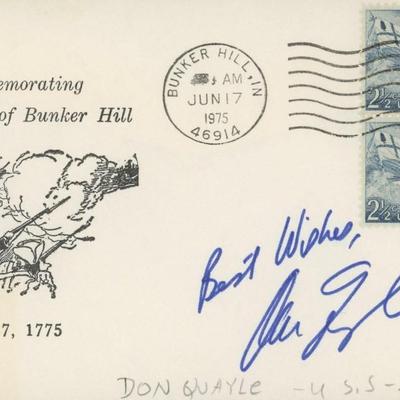 emorating
of Bunker Hill
7, 1775
BUNKER HILL, IN
AM
JUN 17
1975
46914
2½
2½
Best Wishes,
DON QUAYLE - U S.S -